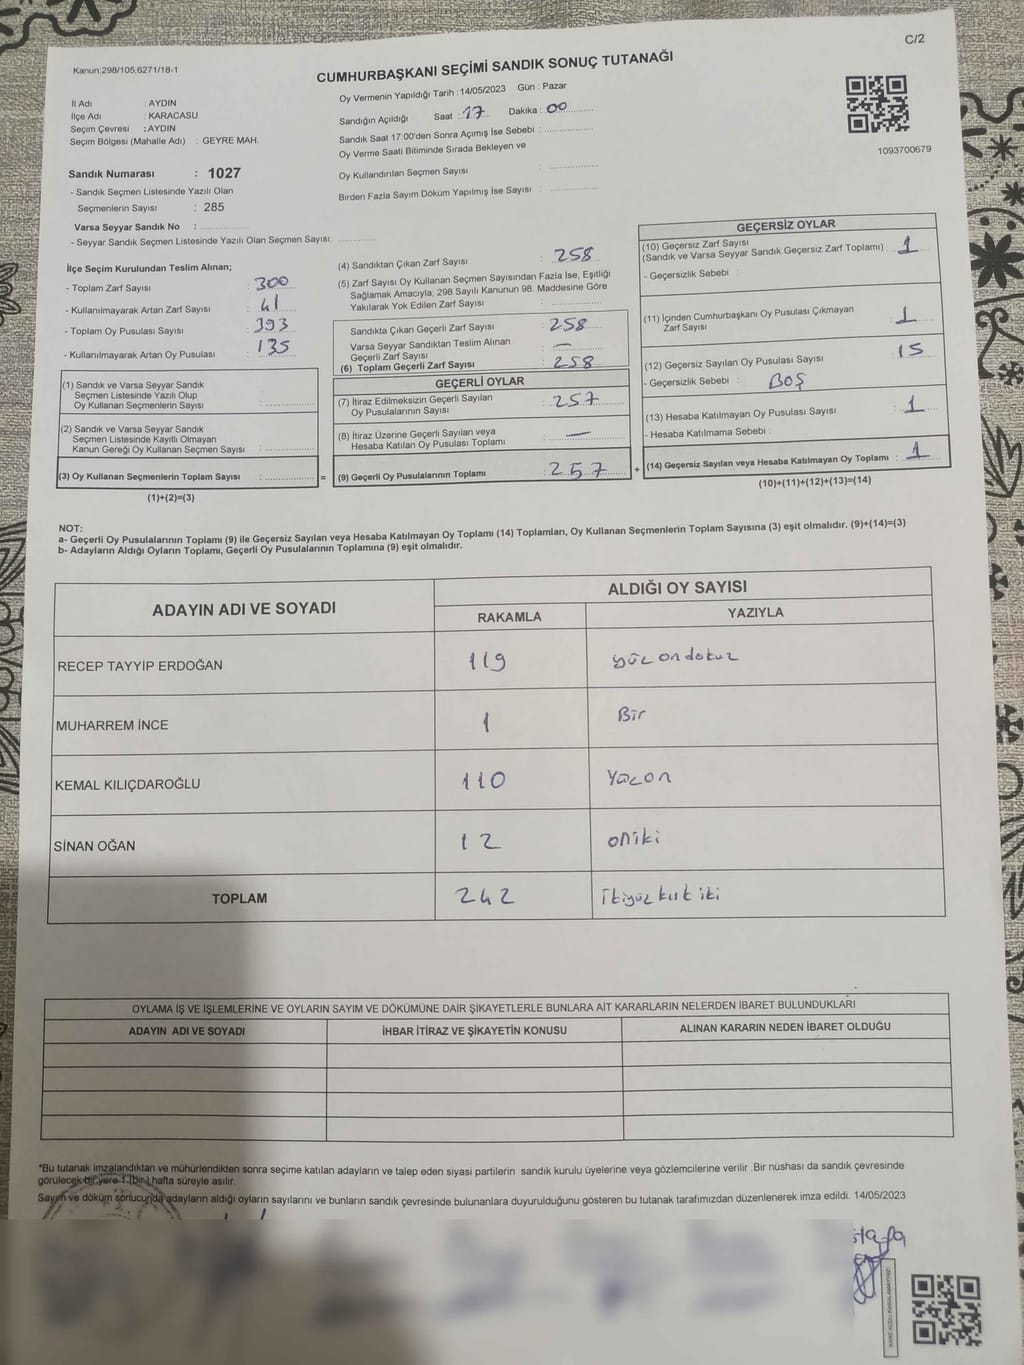 C/2
Kanun;298/105,6271/18-1
CUMHURBAŞKANI SEÇİMİ SANDIK SONUÇ TUTANAĞI
İl Adı : AYDIN
İlçe Adı : KARACASU
Seçim Çevresi : AYDIN
Seçim Bölgesi (Mahalle Adı) : GEYRE MAH.
Oy Vermenin Yapıldığı Tarih : 14/05/2023 Gün : Pazar
Sandığın Açıldığı Saat : 17 Dakika : 00
Sandık Saat 17:00'den Sonra Açımış İse Sebebi :
Oy Verme Saati Bitiminde Sırada Bekleyen ve
Oy Kullandırılan Seçmen Sayısı :
Birden Fazla Sayım Döküm Yapılmış İse Sayısı :
1093700679
Sandık Numarası : 1027
- Sandık Seçmen Listesinde Yazılı Olan
Seçmenlerin Sayısı : 285
Varsa Seyyar Sandık No :
- Seyyar Sandık Seçmen Listesinde Yazılı Olan Seçmen Sayısı:
İlçe Seçim Kurulundan Teslim Alınan;
- Toplam Zarf Sayısı : 300
- Kullanılmayarak Artan Zarf Sayısı : 41
- Toplam Oy Pusulası Sayısı : 393
- Kullanılmayarak Artan Oy Pusulası : 135
(1) Sandık ve Varsa Seyyar Sandık
Seçmen Listesinde Yazılı Olup
Oy Kullanan Seçmenlerin Sayısı :
(2) Sandık ve Varsa Seyyar Sandık
Seçmen Listesinde Kayıtlı Olmayan
Kanun Gereği Oy Kullanan Seçmen Sayısı :
(3) Oy Kullanan Seçmenlerin Toplam Sayısı : =
(1)+(2)=(3)
(4) Sandıktan Çıkan Zarf Sayısı : 258
(5) Zarf Sayısı Oy Kullanan Seçmen Sayısından Fazla İse, Eşitliği
Sağlamak Amacıyla; 298 Sayılı Kanunun 98. Maddesine Göre
Yakılarak Yok Edilen Zarf Sayısı :
Sandıkta Çıkan Geçerli Zarf Sayısı : 258
Varsa Seyyar Sandıktan Teslim Alınan
Geçerli Zarf Sayısı : —
(6) Toplam Geçerli Zarf Sayısı : 258
GEÇERLİ OYLAR
(7) İtiraz Edilmeksizin Geçerli Sayılan
Oy Pusulalarının Sayısı : 257
(8) İtiraz Üzerine Geçerli Sayılan veya
Hesaba Katılan Oy Pusulası Toplamı : —
(9) Geçerli Oy Pusulalarının Toplamı : 257 +
GEÇERSİZ OYLAR
(10) Geçersiz Zarf Sayısı
(Sandık ve Varsa Seyyar Sandık Geçersiz Zarf Toplamı) : 1
- Geçersizlik Sebebi :
(11) İçinden Cumhurbaşkanı Oy Pusulası Çıkmayan
Zarf Sayısı : 1
(12) Geçersiz Sayılan Oy Pusulası Sayısı : 15
- Geçersizlik Sebebi : BOŞ
(13) Hesaba Katılmayan Oy Pusulası Sayısı : 1
- Hesaba Katılmama Sebebi :
(14) Geçersiz Sayılan veya Hesaba Katılmayan Oy Toplamı : 1
(10)+(11)+(12)+(13)=(14)
NOT:
a- Geçerli Oy Pusulalarının Toplamı (9) ile Geçersiz Sayılan veya Hesaba Katılmayan Oy Toplamı (14) Toplamları, Oy Kullanan Seçmenlerin Toplam Sayısına (3) eşit olmalıdır. (9)+(14)=(3)
b- Adayların Aldığı Oyların Toplamı, Geçerli Oy Pusulalarının Toplamına (9) eşit olmalıdır.
ADAYIN ADI VE SOYADI ALDIĞI OY SAYISI
RAKAMLA YAZIYLA
RECEP TAYYİP ERDOĞAN 119 yüz ondokuz
MUHARREM İNCE 1 Bir
KEMAL KILIÇDAROĞLU 110 Yüzon
SİNAN OĞAN 12 oniki
TOPLAM 242 İkiyüz kırk iki
OYLAMA İŞ VE İŞLEMLERİNE VE OYLARIN SAYIM VE DÖKÜMÜNE DAİR ŞİKAYETLERLE BUNLARA AİT KARARLARIN NELERDEN İBARET BULUNDUKLARI
ADAYIN ADI VE SOYADI İHBAR İTİRAZ VE ŞİKAYETİN KONUSU ALINAN KARARIN NEDEN İBARET OLDUĞU
*Bu tutanak imzalandıktan ve mühürlendikten sonra seçime katılan adayların ve talep eden siyasi partilerin sandık kurulu üyelerine veya gözlemcilerine verilir .Bir nüshası da sandık çevresinde
görülecek bir yere 1 (bir) hafta süreyle asılır.
Sayım ve döküm sonucunda adayların aldığı oyların sayılarını ve bunların sandık çevresinde bulunanlara duyurulduğunu gösteren bu tutanak tarafımızdan düzenlenerek imza edildi. 14/05/2023